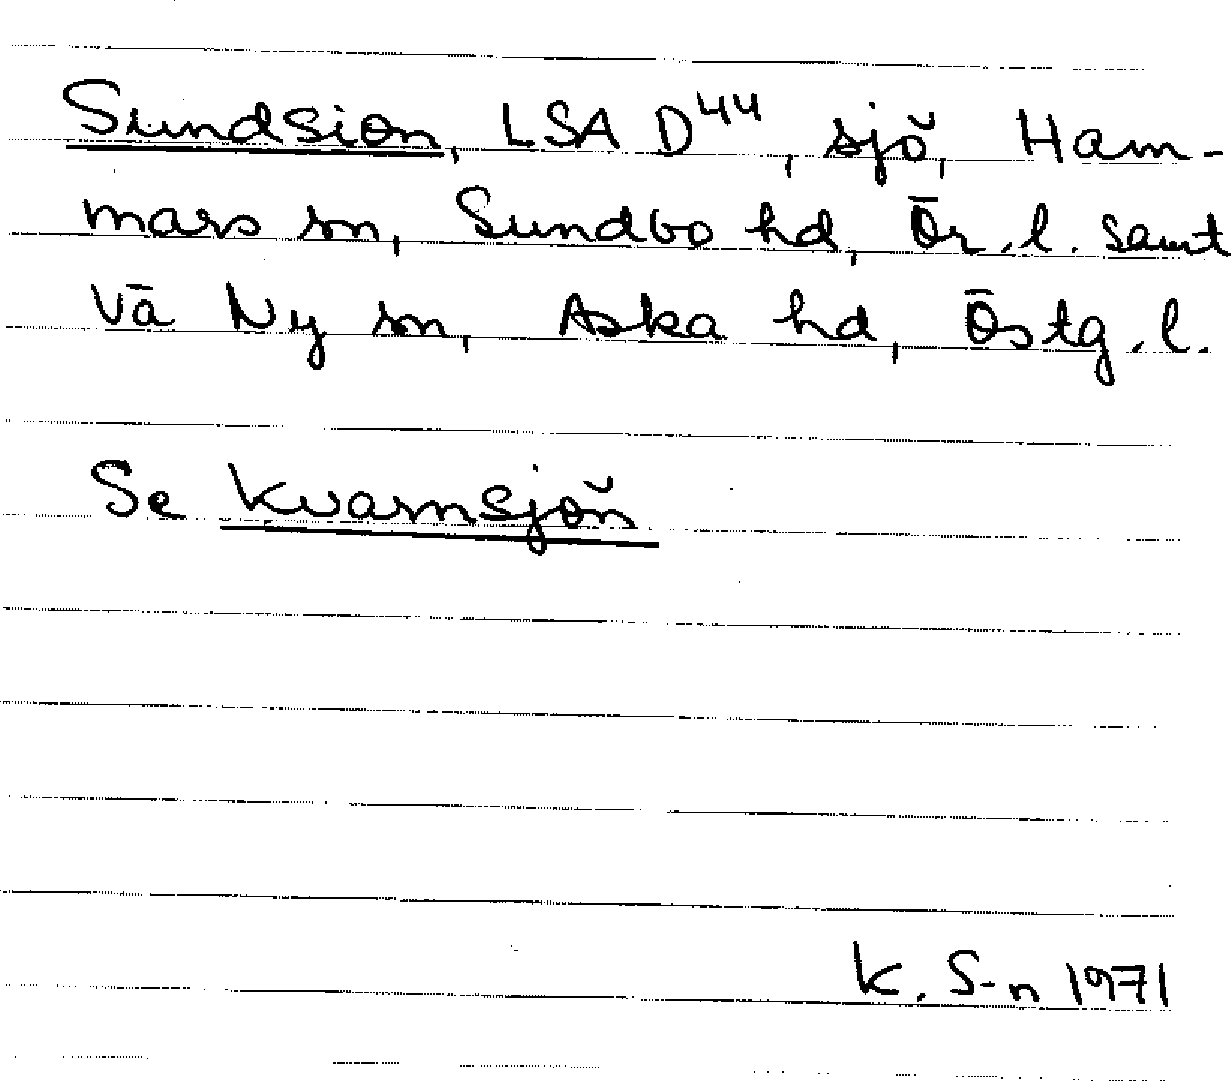 Sundsion, LSA D44, sjö, Ham-
mars sn, Sundbo hd, Ör. l. samt
Vä Ny sn, Aska hd, Östg. l.
Se Kvarnsjön
K. S-n 1971